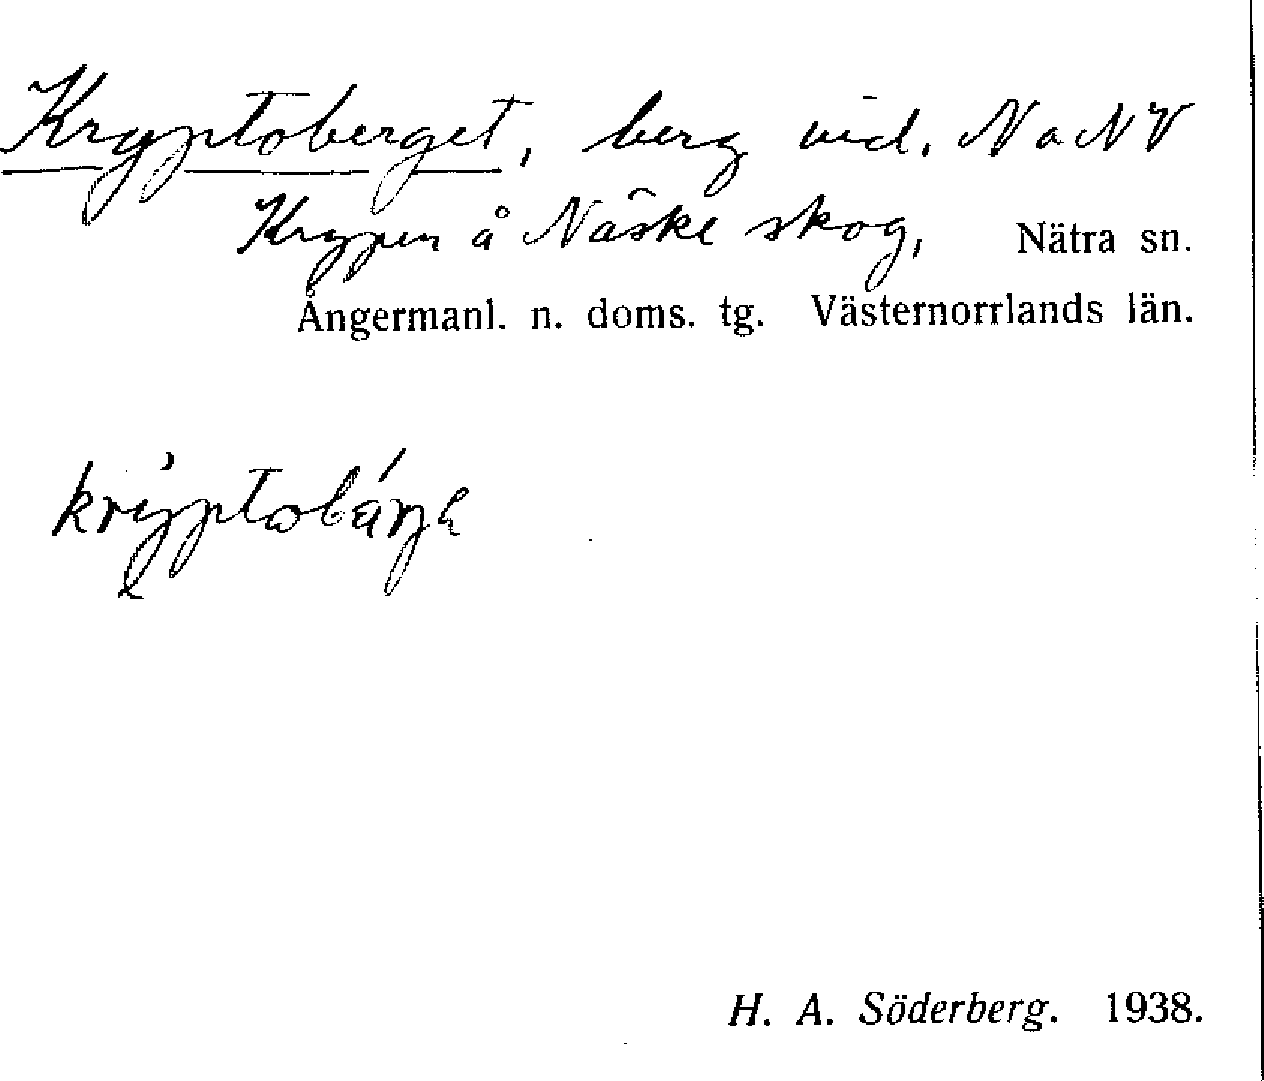 Kryptoberget, berg vid. N o NV
Krypen å Näske skog, Nätra sn.
Ångermanl. n. doms. tg. Västernorrlands län.
H. A. Söderberg. 1938.